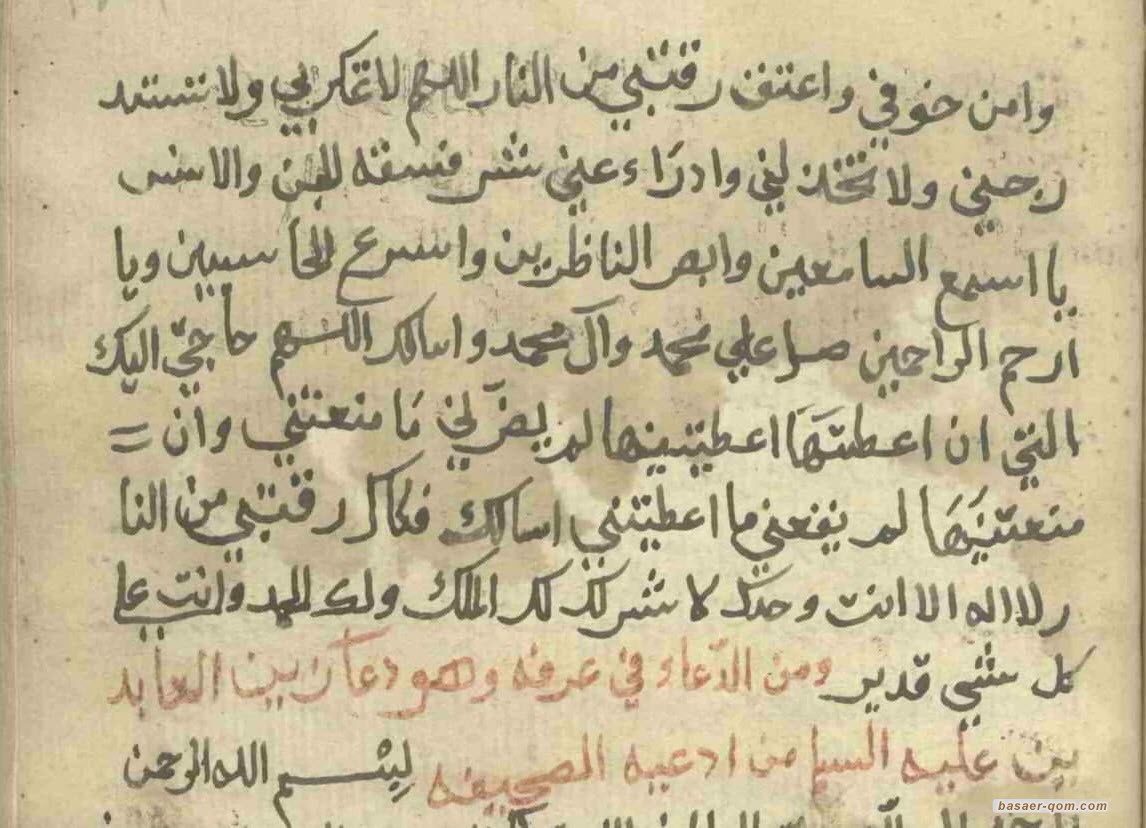 وامن خوفي واعتق رقبتي من النار اللهم لا تمكر بي ولا تستد
رجني ولا تخذلني وادراء عني شر فسقه الجن والانس
يا اسمع السامعين وابصر الناظرين واسرع الحاسبين ويا
ارحم الراحمين صل علي محمد وآل محمد واسالك اللهم حاجتي اليك
التي ان اعطيتها اعطيتنيها لم يضرني ما منعتني وان =
منعتنيها لم ينفعني ما اعطيتني اسالك فكاك رقبتي من النا
ر لا اله الا انت وحدك لا شريك لك لك الملك ولك الحمد وانت علي
كل شي قدير ومن الدّعاء في عرفه وهو دعا زين العابد
ين عليه السلم من ادعيه الصحيفه بسم الله الرحمن
basaer-qom.com